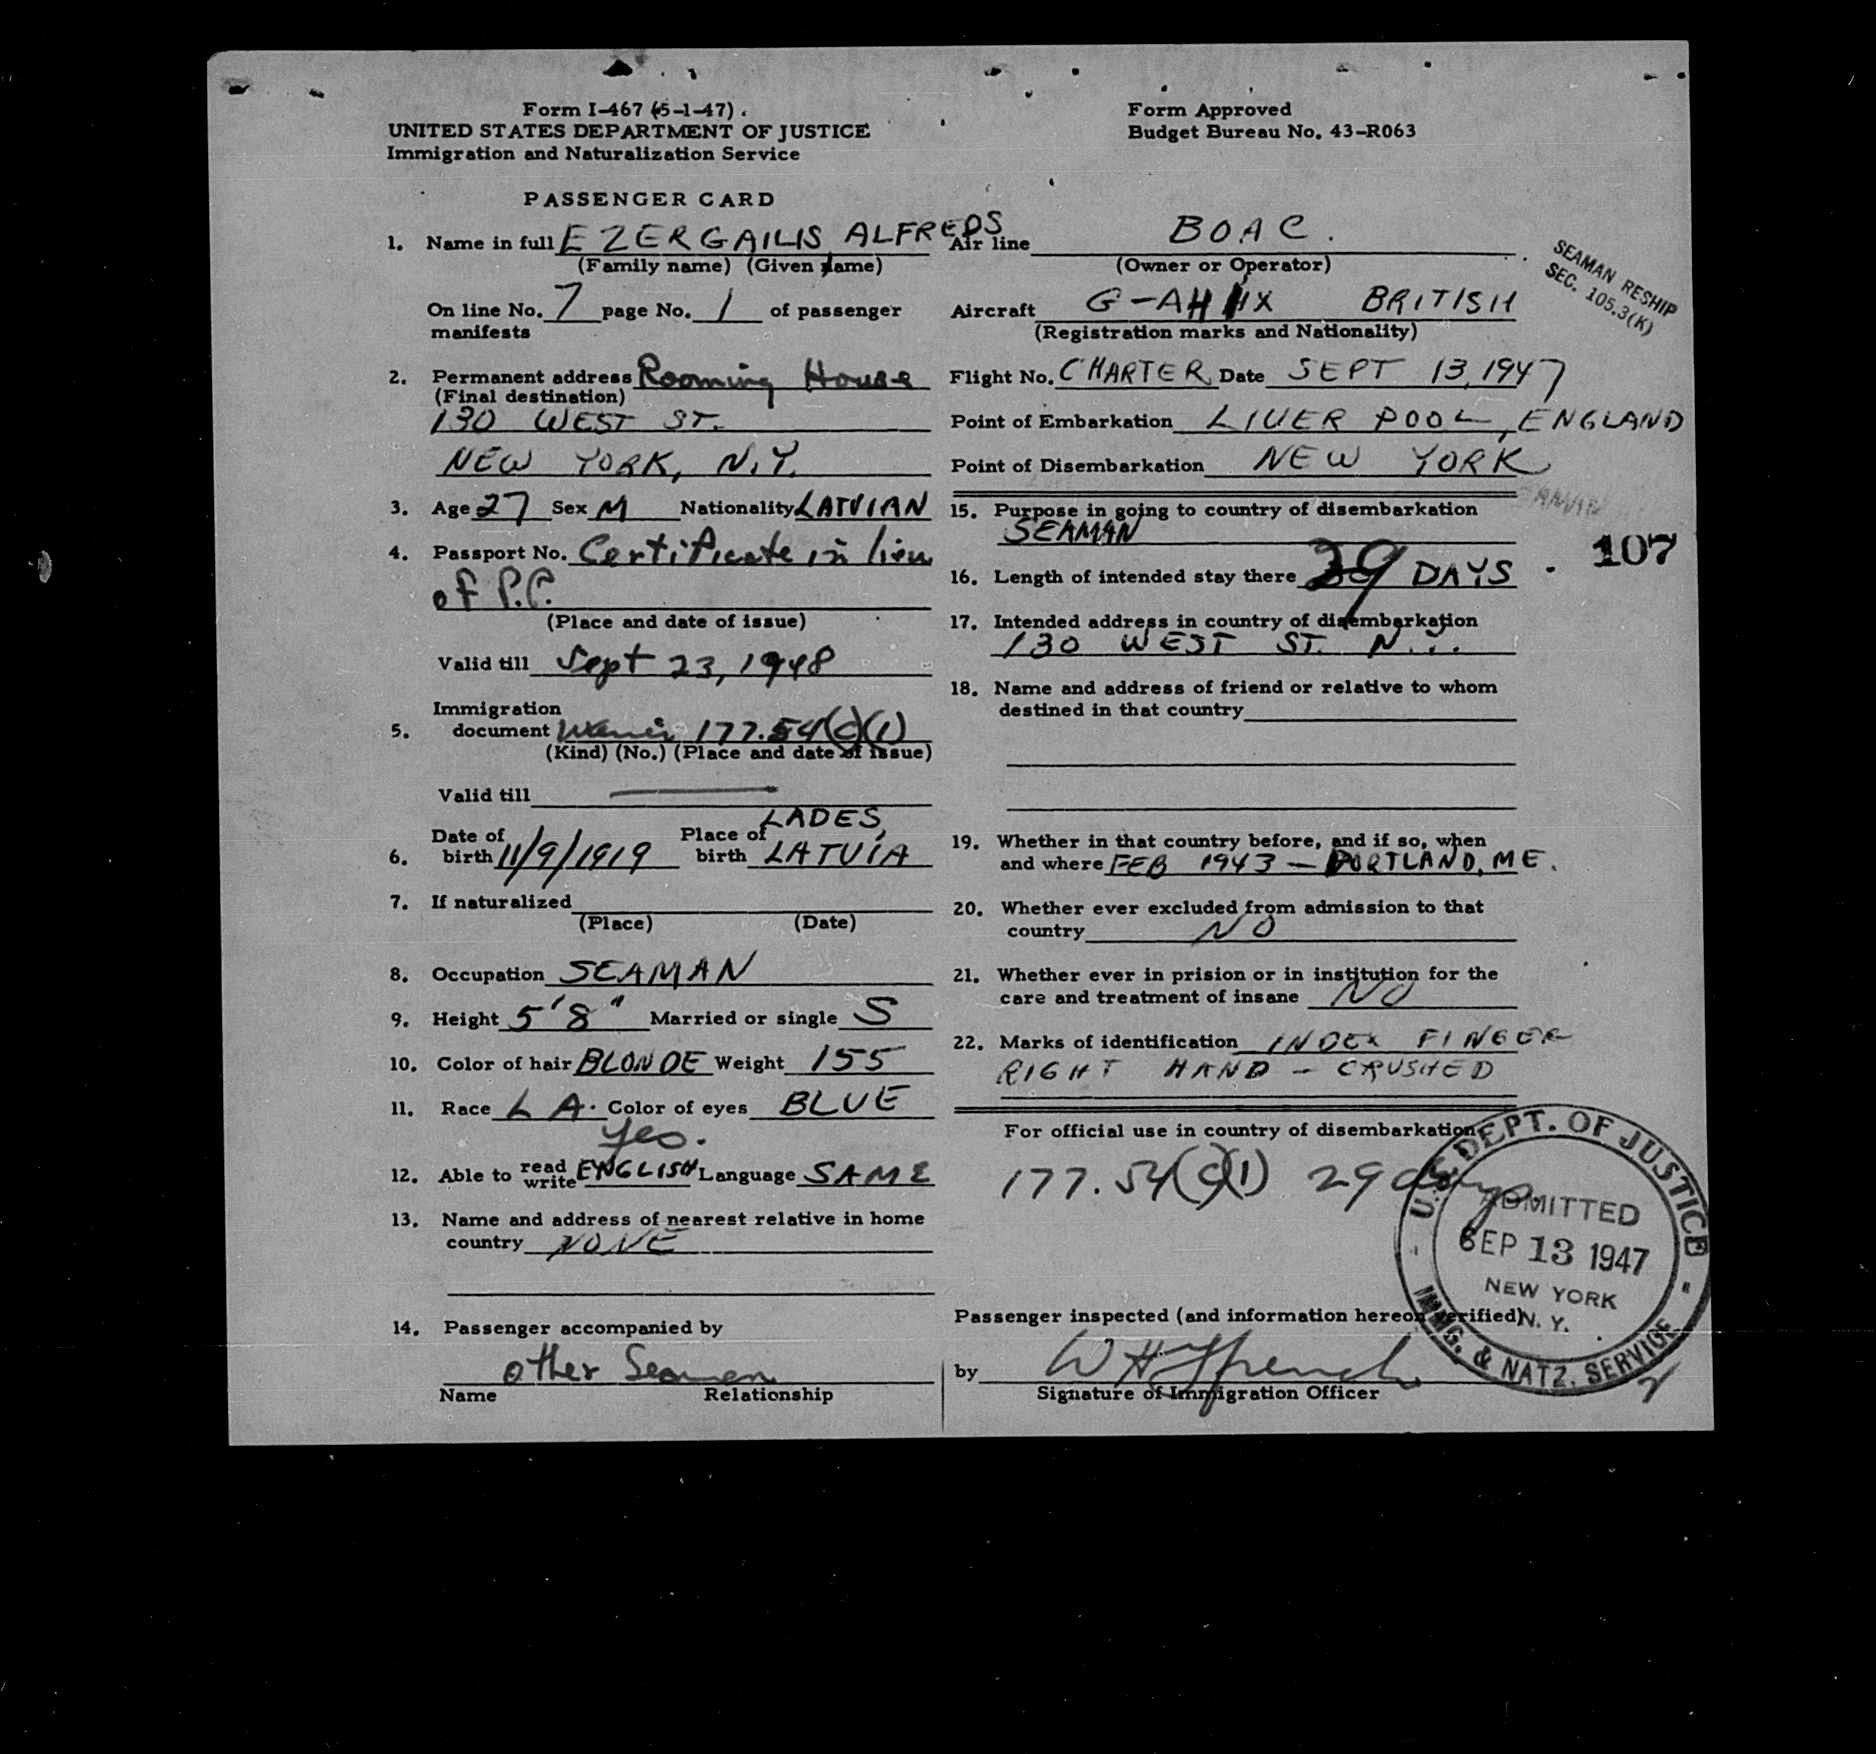 Form I-467 (5-1-47).
UNITED STATES DEPARTMENT OF JUSTICE
Immigration and Naturalization Service
Form Approved
Budget Bureau No. 43-R063
PASSENGER CARD
1. Name in full EZERGAILIS ALFREDS
(Family name) (Given name)
On line No. 7 page No. 1 of passenger
manifests
2. Permanent address Rooming House
(Final destination)
130 WEST ST.
NEW YORK, N.Y.
3. Age 27 Sex M Nationality LATVIAN
4. Passport No. Certificate in lieu
of P.P.
(Place and date of issue)
Valid till Sept 23, 1948
Immigration
5. document 177.54(c)(1)
(Kind) (No.) (Place and date of issue)
Valid till
LADES,
Date of Place of
6. birth 11/9/1919 birth LATVIA
7. If naturalized
(Place) (Date)
8. Occupation SEAMAN
9. Height 5'8" Married or single S
10. Color of hair BLONDE Weight 155
11. Race LA. Color of eyes BLUE
Yes.
12. Able to read write ENGLISH Language SAME
13. Name and address of nearest relative in home
country NONE
14. Passenger accompanied by
other Seamen
Name Relationship
Air line BOAC.
(Owner or Operator)
Aircraft G-AHHX BRITISH
(Registration marks and Nationality)
SEAMAN RESHIP
SEC. 105.3(K)
Flight No. CHARTER Date SEPT 13, 1947
Point of Embarkation LIVERPOOL, ENGLAND
Point of Disembarkation NEW YORK
15. Purpose in going to country of disembarkation
SEAMAN
107
16. Length of intended stay there 29 DAYS
17. Intended address in country of disembarkation
130 WEST ST. N.Y.
18. Name and address of friend or relative to whom
destined in that country
19. Whether in that country before, and if so, when
and where FEB 1943 - PORTLAND, ME.
20. Whether ever excluded from admission to that
country NO
21. Whether ever in prision or in institution for the
care and treatment of insane NO
22. Marks of identification INDEX FINGER
RIGHT HAND - CRUSHED
For official use in country of disembarkation
177.54(c)(1) 29 days.
U.S. DEPT. OF JUSTICE
ADMITTED
SEP 13 1947
NEW YORK
N. Y.
IMMG. & NATZ. SERVICE
Passenger inspected (and information hereon verified)
by
Signature of Immigration Officer